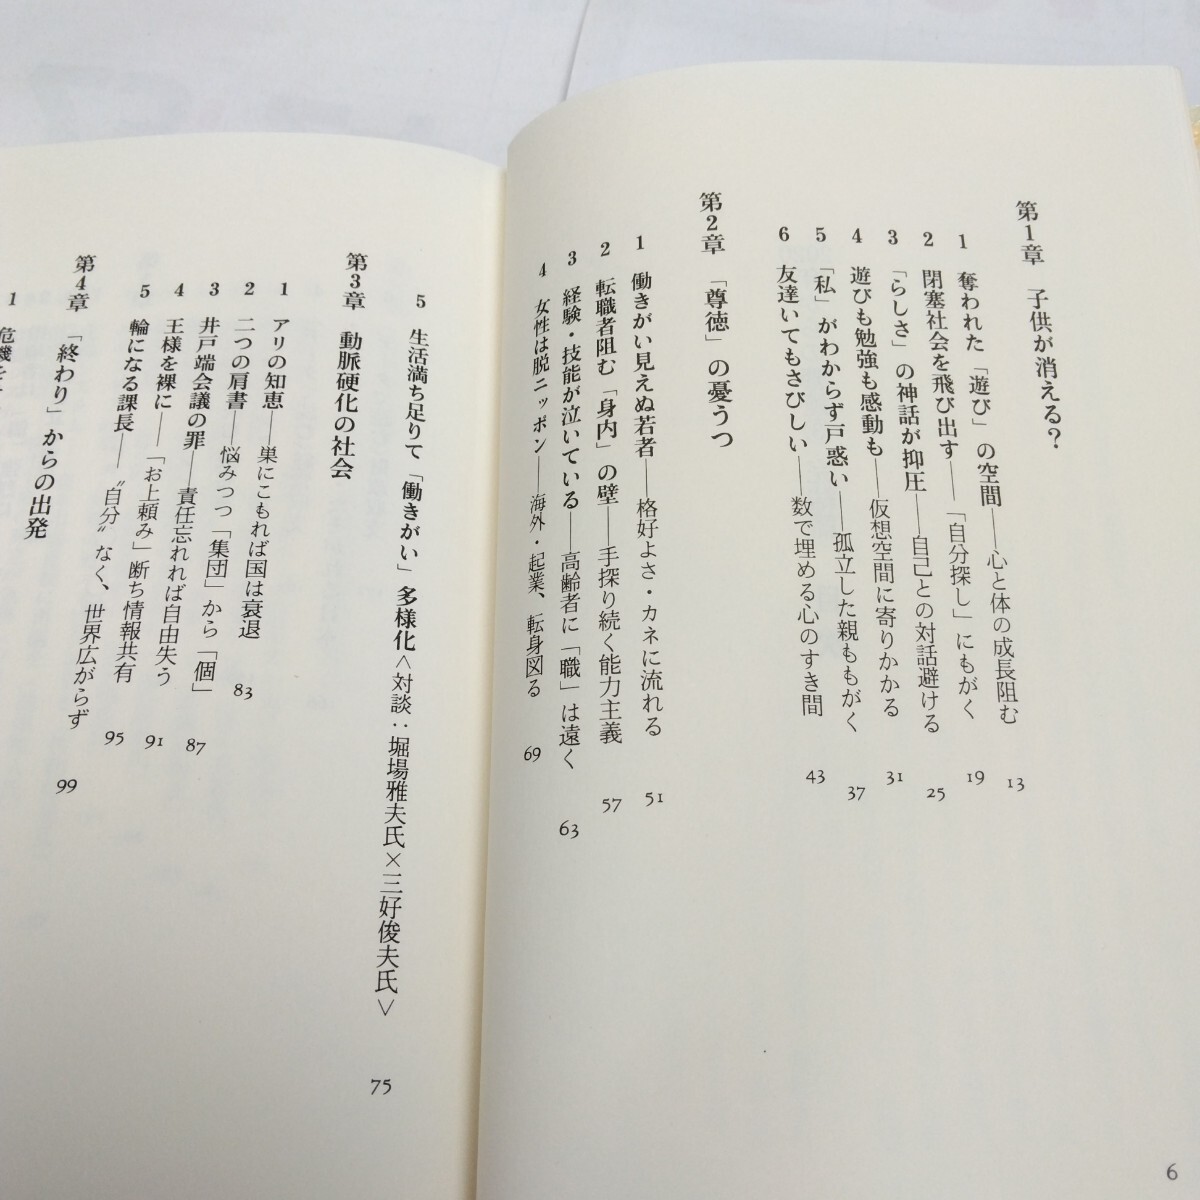 第1章 子供が消える？
1 奪われた「遊び」の空間――心と体の成長阻む 13
2 閉塞社会を飛び出す――「自分探し」にもがく 19
3 「らしさ」の神話が抑圧――自己との対話避ける 25
4 遊びも勉強も感動も――仮想空間に寄りかかる 31
5 「私」がわからず戸惑い――孤立した親ももがく 37
6 友達いてもさびしい――数で埋める心のすき間 43
第2章 「尊徳」の憂うつ
1 働きがい見えぬ若者――格好よさ・カネに流れる 51
2 転職者阻む「身内」の壁――手探り続く能力主義 57
3 経験・技能が泣いている――高齢者に「職」は遠く 63
4 女性は脱ニッポン――海外・起業、転身図る 69
6
5 生活満ち足りて「働きがい」多様化〈対談：堀場雅夫氏×三好俊夫氏〉 75
第3章 動脈硬化の社会
1 アリの知恵――巣にこもれば国は衰退 83
2 二つの肩書――悩みつつ「集団」から「個」 87
3 井戸端会議の罪――責任忘れれば自由失う 91
4 王様を裸に――「お上頼み」断ち情報共有 95
5 輪になる課長――〝自分〟なく、世界広がらず 99
第4章 「終わり」からの出発
1 危機を